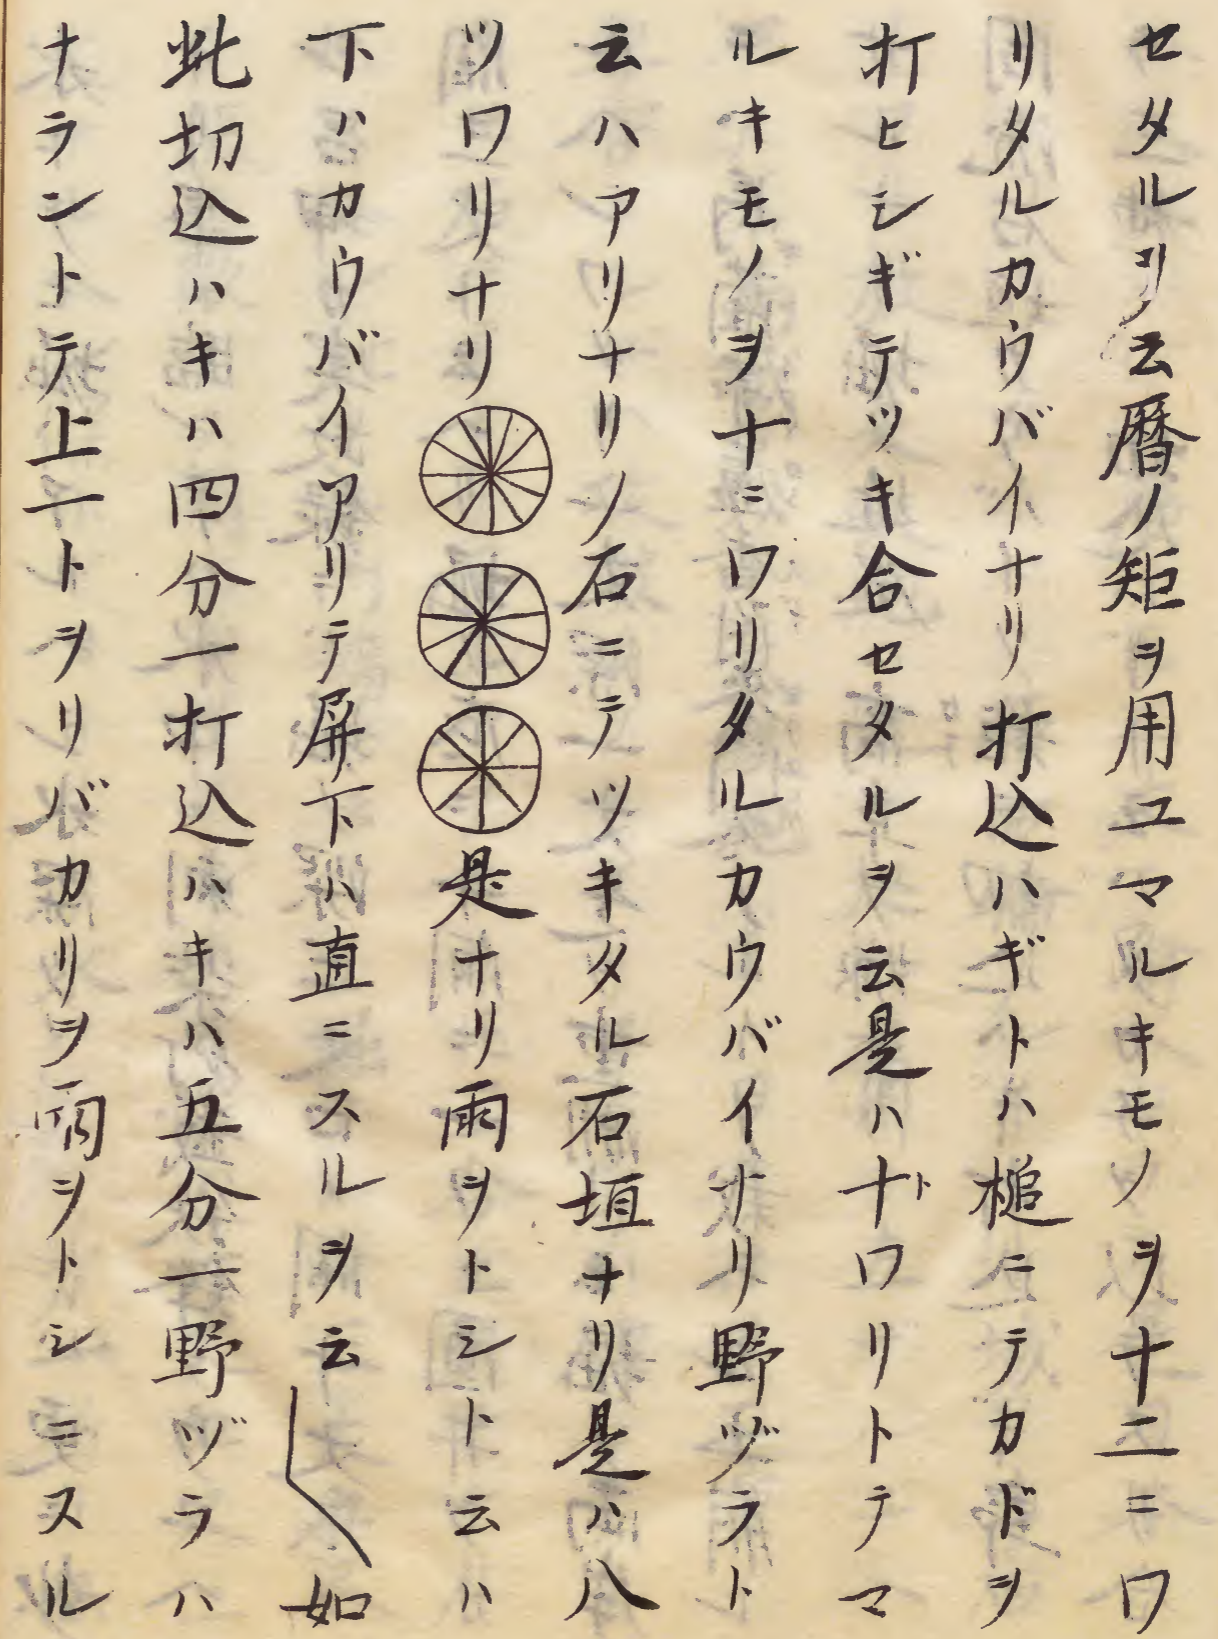 セタルヲ云暦ノ矩ヲ用ユマルキモノヲ十二ニワ
リタルカウバイナリ打込ハギトハ槌ニテカドヲ
打ヒシギテツキ合セタルヲ云是ハ十トワリトテマ
ルキモノヲ十ニワリタルカウバイナリ野ヅラト
云ハアリナリノ石ニテツキタル石垣ナリ是ハ八
ツワリナリ是ナリ雨ヲトシト云ハ
下ハカウバイアリテ屏下ハ直ニスルヲ云如
此切込ハキハ四分一打込ハキハ五分一野ヅラハ
ナラントテ上一トヲリバカリヲ雨ヲトシニスル